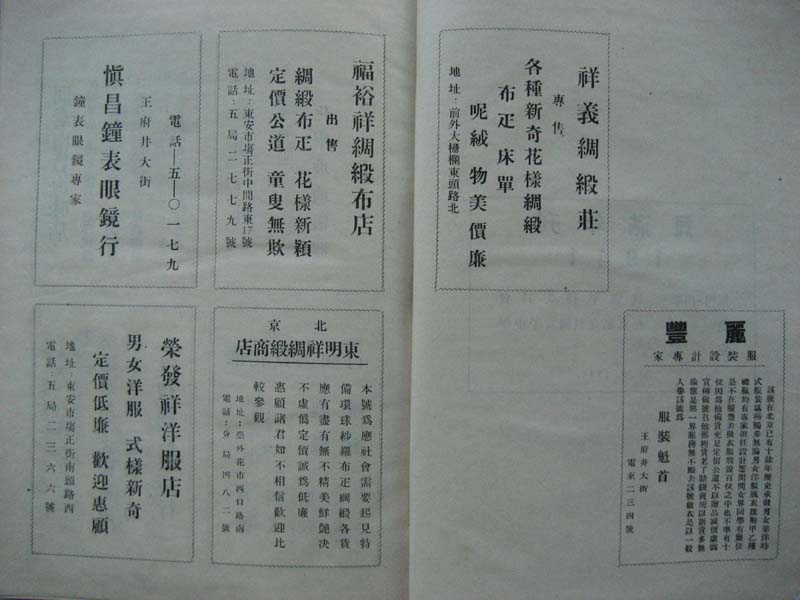 祥義綢緞莊
專售
各種新奇花樣綢緞
布疋床單
呢絨 物美價廉
地址：前外大柵欄東頭路北
麗豐
服裝設計專家
服裝魁首
王府井大街
電東二三四號
福裕祥綢緞布店
出售
綢緞布疋 花樣新穎
定價公道 童叟無欺
地址：東安市場正街中間路東17號
電話：五局二七七九號
電話—五—〇一七九
王府井大街
慎昌鐘表眼鏡行
鐘表眼鏡專家
北京
東明祥綢緞商店
本號爲應社會需要起見特
備環球紗羅布疋綢緞各貨
應有盡有無不精美鮮艷決
不虛偽定價誠爲低廉
惠顧諸君如不相信歡迎比
較參觀
地址：崇外花市四口路南
電話：分局四八二號
榮發祥洋服店
男女洋服 式樣新奇
定價低廉 歡迎惠顧
地址：東安市場正街南頭路西
電話：五局二三六六號